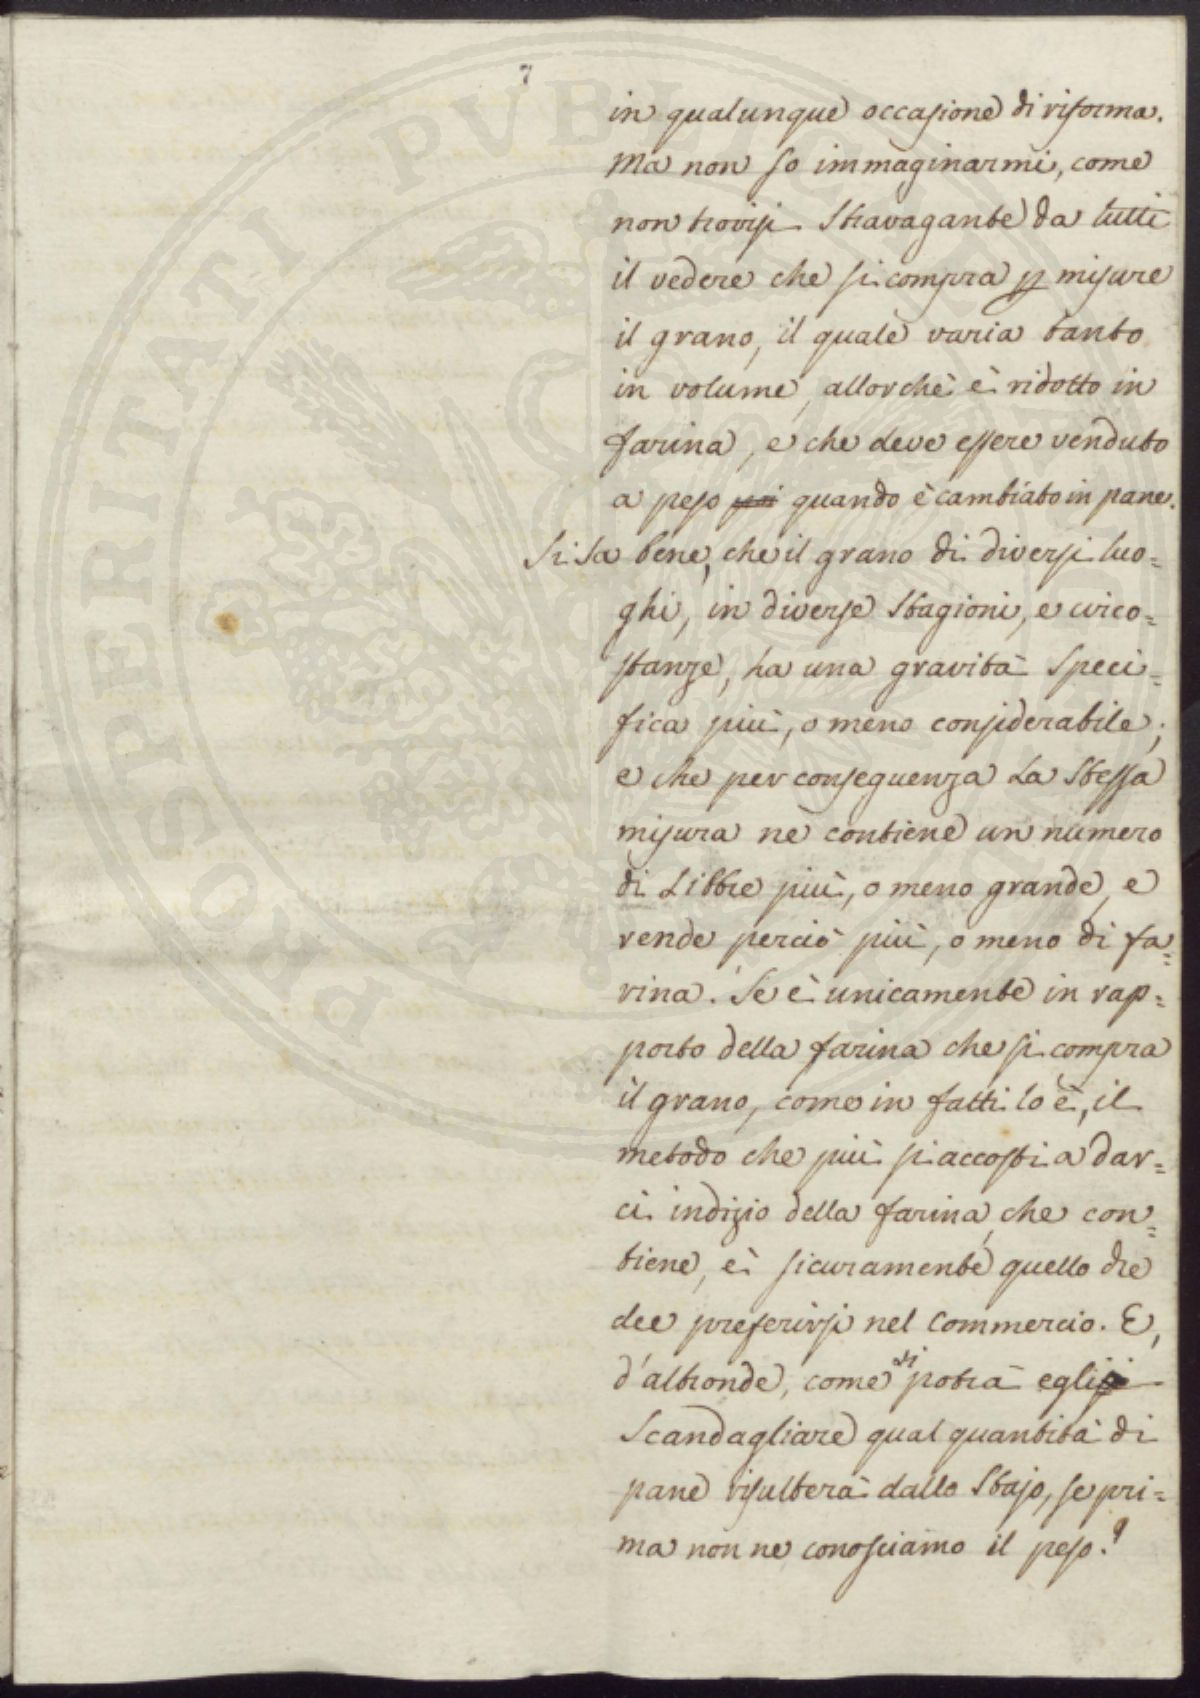 7
in qualunque occasione di riforma.
Ma non so immaginarmi, come
non trovisi stravagante da tutti
il vedere che si compra p misure
il grano, il quale varia tanto
in volume, allorchè è ridotto in
farina, e che deve essere venduto
a peso poi quando è cambiato in pane.
Si sa bene, che il grano di diversi luo=
ghi, in diverse stagioni, e circo=
stanze, ha una gravità speci=
fica più, o meno considerabile;
e che per conseguenza la stessa
misura ne contiene un numero
di Libbre più, o meno grande, e
rende perciò più, o meno di fa=
rina. Se è unicamente in rap=
porto della farina che si compra
il grano, come in fatti lo è, il
metodo che più si accosti a dar=
ci indizio della farina, che con=
tiene, è sicuramente quello che
dee preferirsi nel Commercio. E,
d'altronde, come si potrà egli
Scandagliare qual quantità di
pane risulterà dallo Stajo, se pri=
ma non ne conosciamo il peso?
PROSPERITATI PUBLICAE AUGENDAE